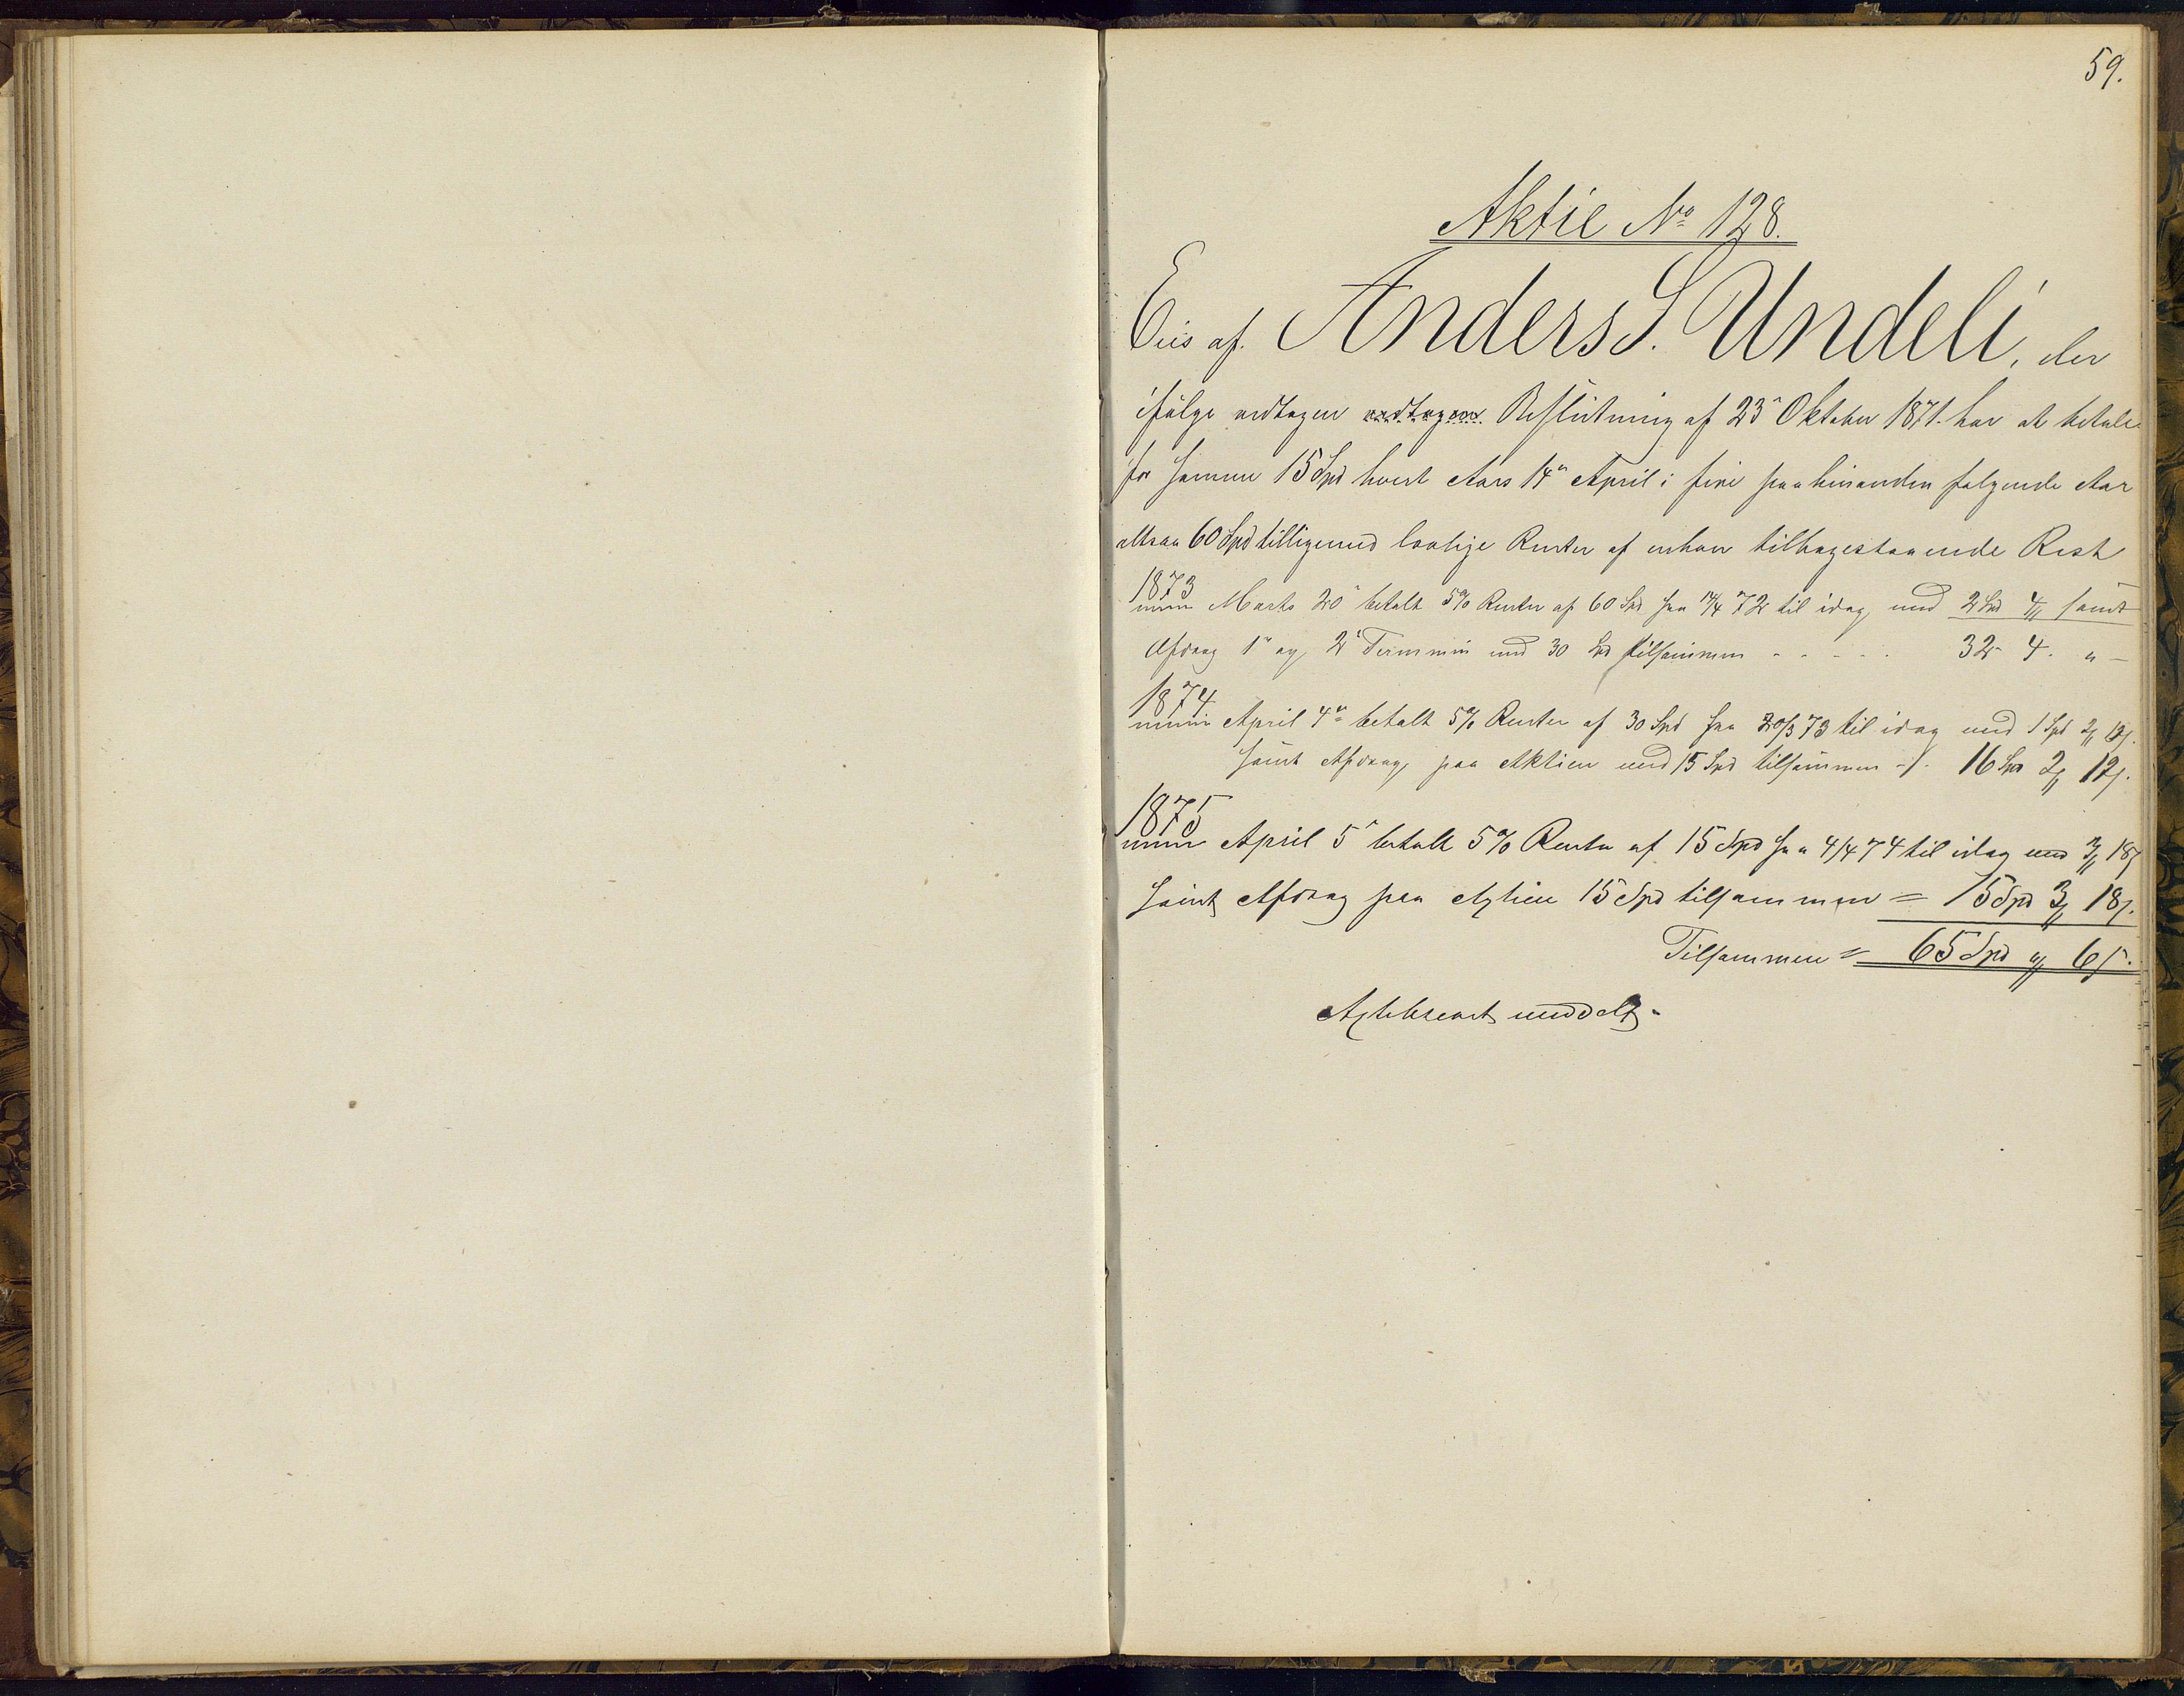 59.
Aktie No 128.
Eies af Anders S. Undeli, der
ifølge vedtagen vedtagen Beslutning af 23de Oktober 1871. har at betale
for samme 15 Spd hvert Aars 14de April i fire paa hinanden følgende Aar
altsaa 60 Spd tilligemed lovlige Renter af enhver tilbagestaaende Rest
1873
Marts 20de betalt 5% Renter af 60 Spd fra 14/4 72 til idag med 2 Spd 4 samt
Afdrag 1ste og 2den Termmin med 30 Spd tilsammen - - - - - 32 - 4. " -
1874
April 4de betalt 5% Renter af 30 Spd fra 20/3 73 til idag med 1 Spd 2 12
samt Afdrag paa Aktien med 15 Spd tilsammen -/- 16 Spd 2 12
1875
April 5te betalt 5% Rente af 15 Spd fra 4/4 74 til idag med 3 18
samt Afdrag paa Aktien 15 Spd tilsammen = 15 Spd 3 18
Tilsammen = 65 Spd " 6
Aktiebrevet meddelt.